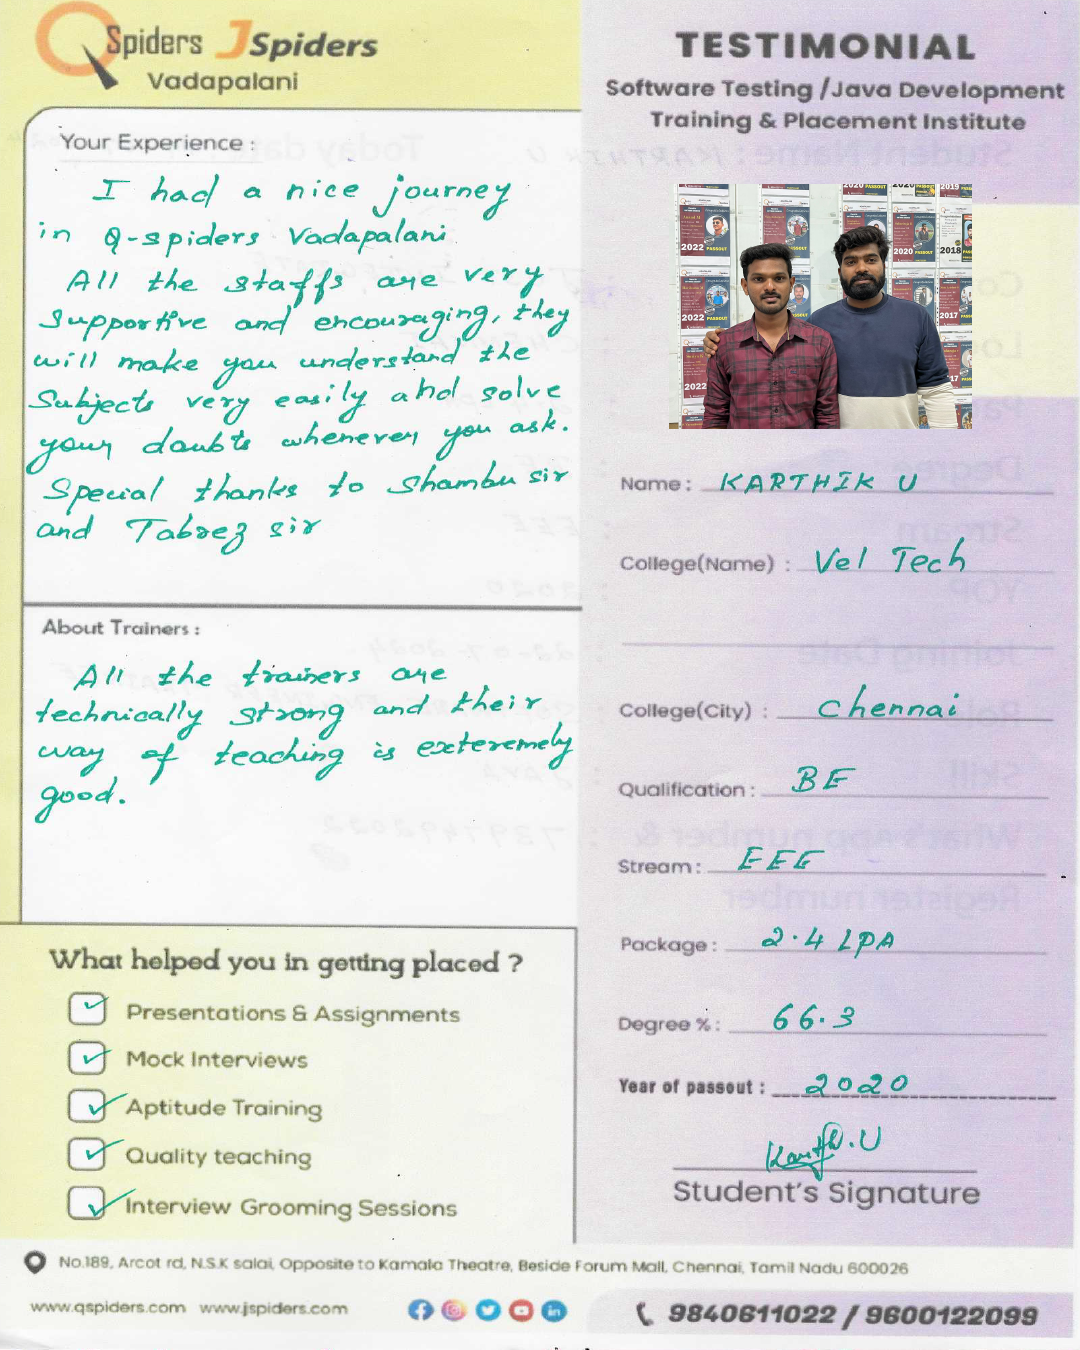 QSpiders JSpiders
Vadapalani
TESTIMONIAL
Software Testing /Java Development
Training & Placement Institute
Your Experience :
I had a nice journey
in Q-spiders Vadapalani
All the staffs are very
supportive and encouraging, they
will make you understand the
Subjects very easily and solve
your doubts whenever you ask.
Special thanks to Shambu sir
and Tabrez sir
About Trainers :
All the trainers are
technically strong and their
way of teaching is exteremely
good.
What helped you in getting placed ?
Presentations & Assignments
Mock Interviews
Aptitude Training
Quality teaching
Interview Grooming Sessions
2020
2020
2019
2022 PASSOUT
PASSOUT
PASSOUT
2018
2022 PASSOUT
PASSOUT
2017
2022
17
Name : KARTHIK U
College(Name) : Vel Tech
College(City) : Chennai
Qualification : BE
Stream : EEE
Package : 2.4 LPA
Degree % : 66.3
Year of passout : 2020
Karthi.U
Student's Signature
No.189, Arcot rd, N.S.K salai, Opposite to Kamala Theatre, Beside Forum Mall, Chennai, Tamil Nadu 600026
www.qspiders.com www.jspiders.com
9840611022 / 9600122099